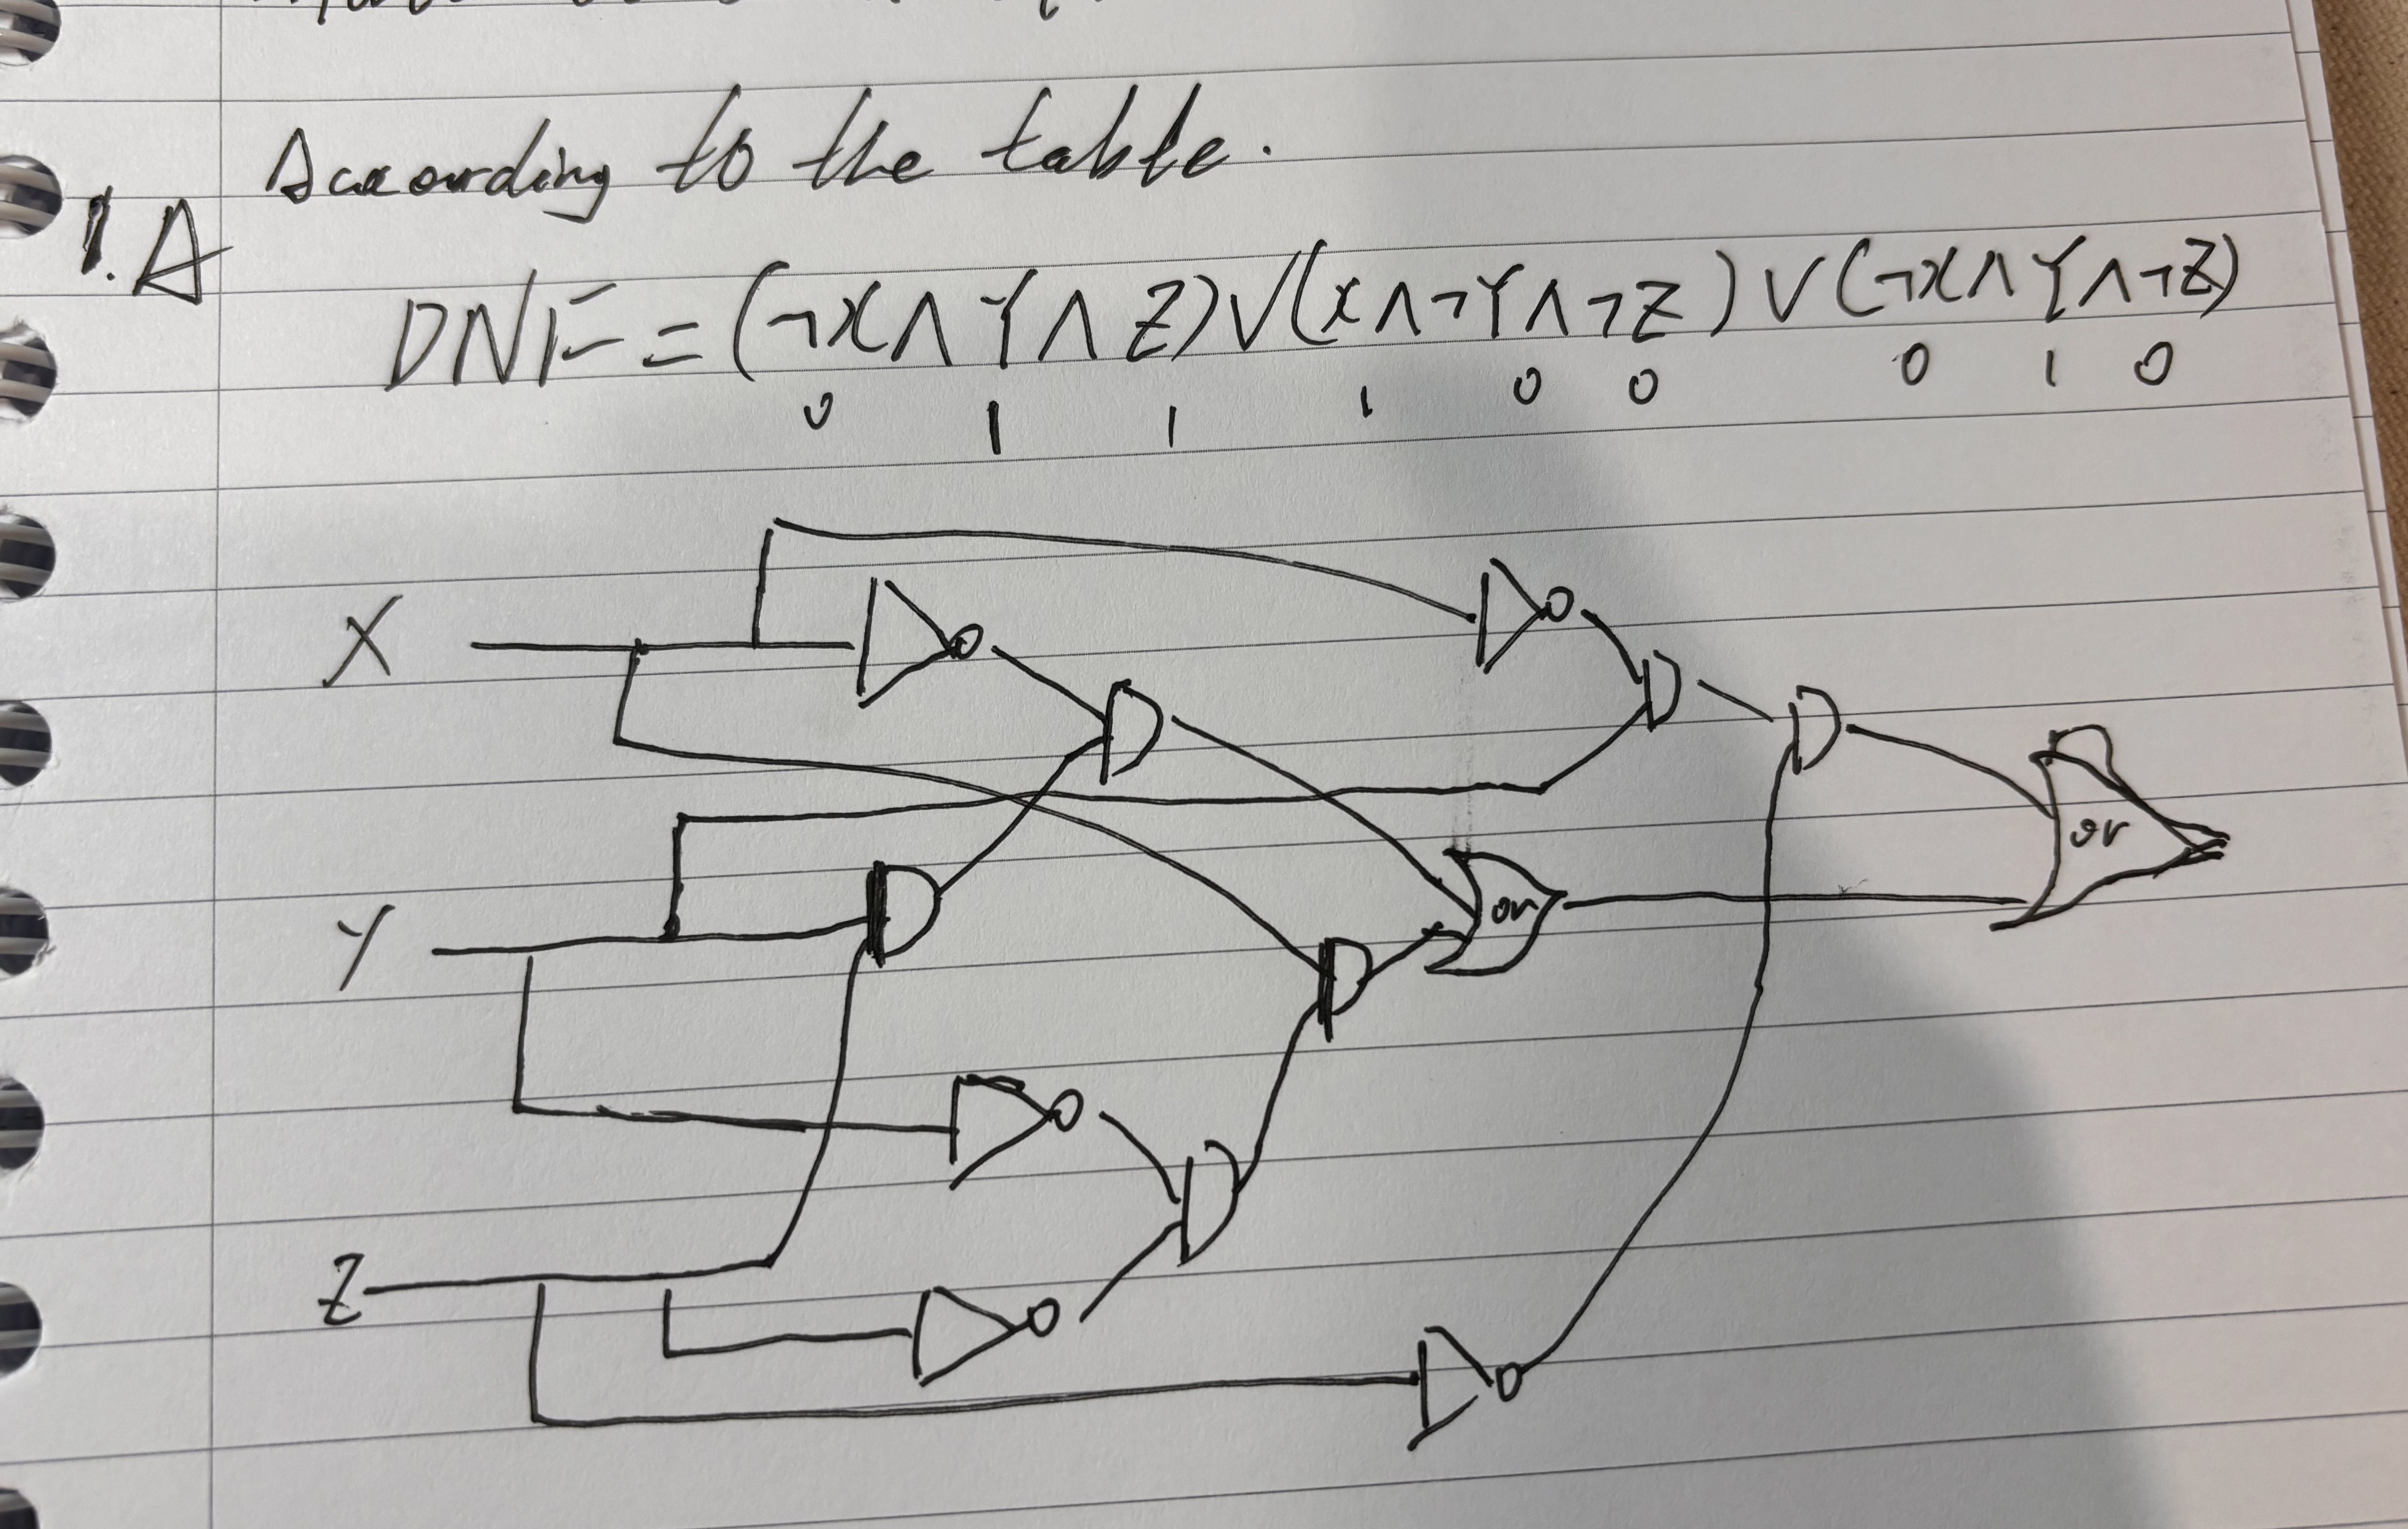 According to the table.
1.A
DNF = (¬X∧Y∧Z)∨(X∧¬Y∧¬Z)∨(¬X∧Y∧¬Z)
0 1 1 1 0 0 0 1 0
X
or
or
Y
Z